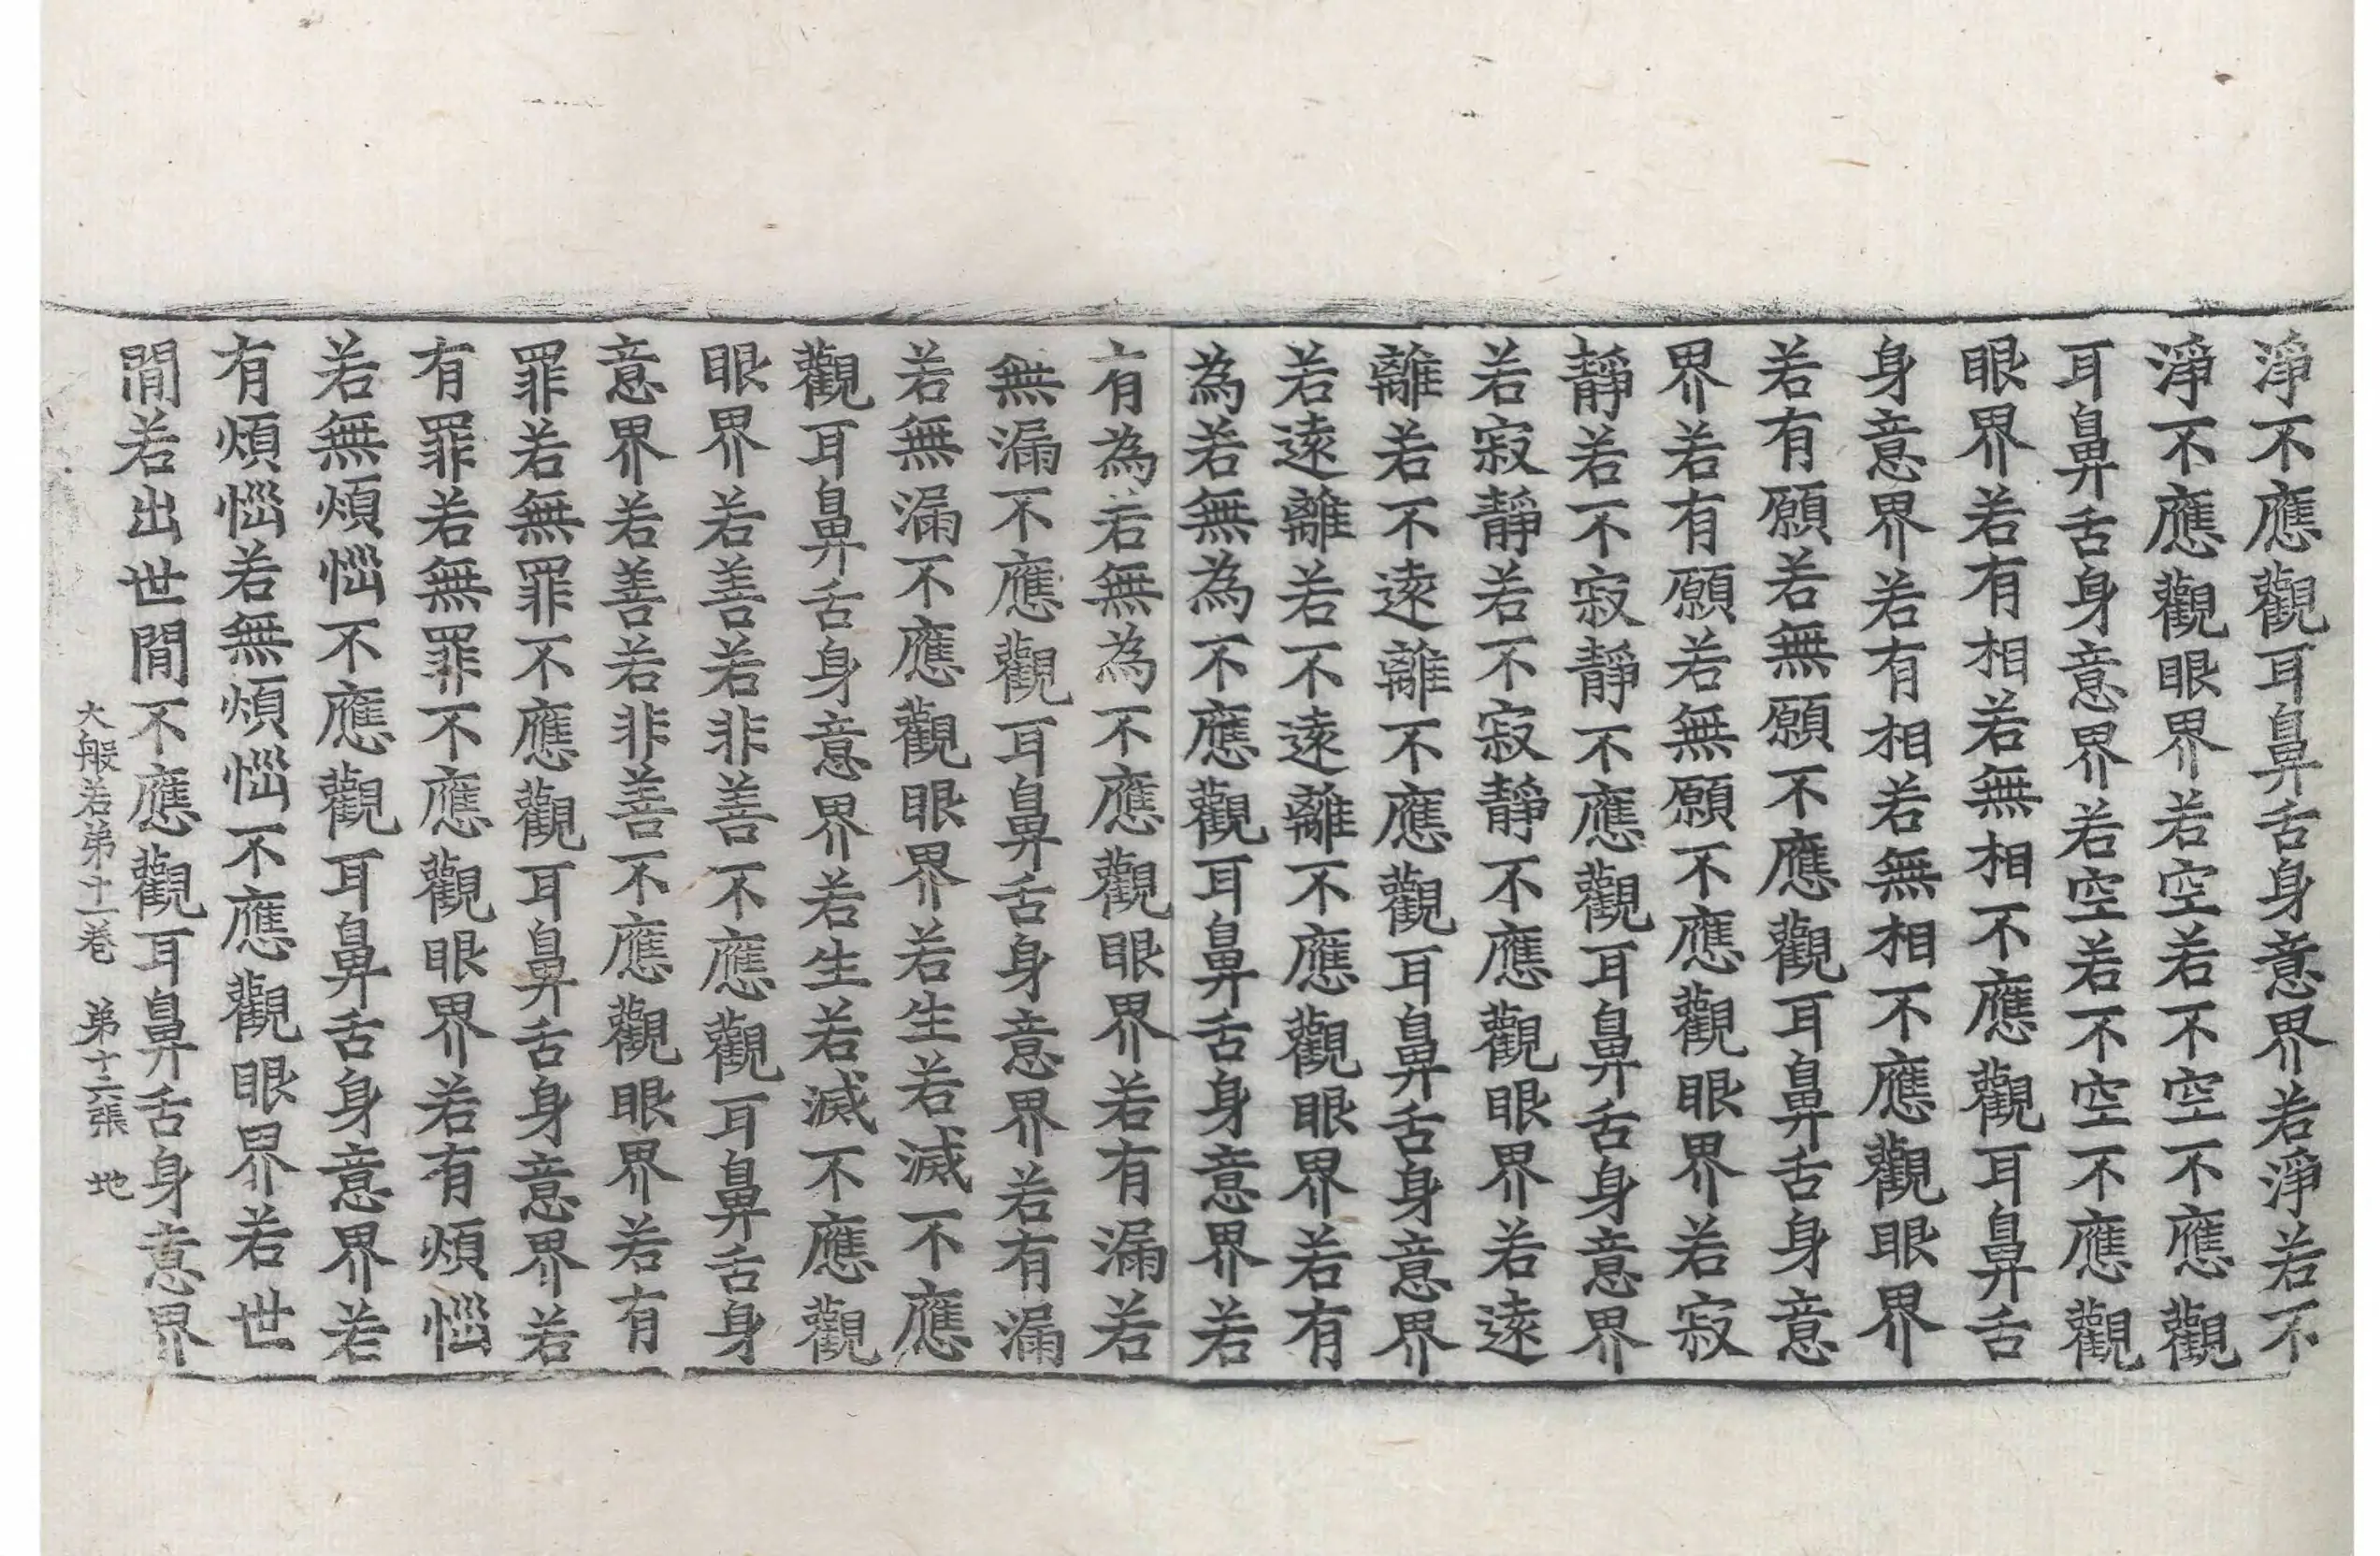 淨不應觀耳鼻舌身意界若淨若不
淨不應觀眼界若空若不空不應觀
耳鼻舌身意界若空若不空不應觀
眼界若有相若無相不應觀耳鼻舌
身意界若有相若無相不應觀眼界
若有願若無願不應觀耳鼻舌身意
界若有願若無願不應觀眼界若寂
靜若不寂靜不應觀耳鼻舌身意界
若寂靜若不寂靜不應觀眼界若遠
離若不遠離不應觀耳鼻舌身意界
若遠離若不遠離不應觀眼界若有
為若無為不應觀耳鼻舌身意界若
有為若無為不應觀眼界若有漏若
無漏不應觀耳鼻舌身意界若有漏
若無漏不應觀眼界若生若滅不應
觀耳鼻舌身意界若生若滅不應觀
眼界若善若非善不應觀耳鼻舌身
意界若善若非善不應觀眼界若有
罪若無罪不應觀耳鼻舌身意界若
有罪若無罪不應觀眼界若有煩惱
若無煩惱不應觀耳鼻舌身意界若
有煩惱若無煩惱不應觀眼界若世
間若出世間不應觀耳鼻舌身意界
大般若第十一卷 第十六張 地